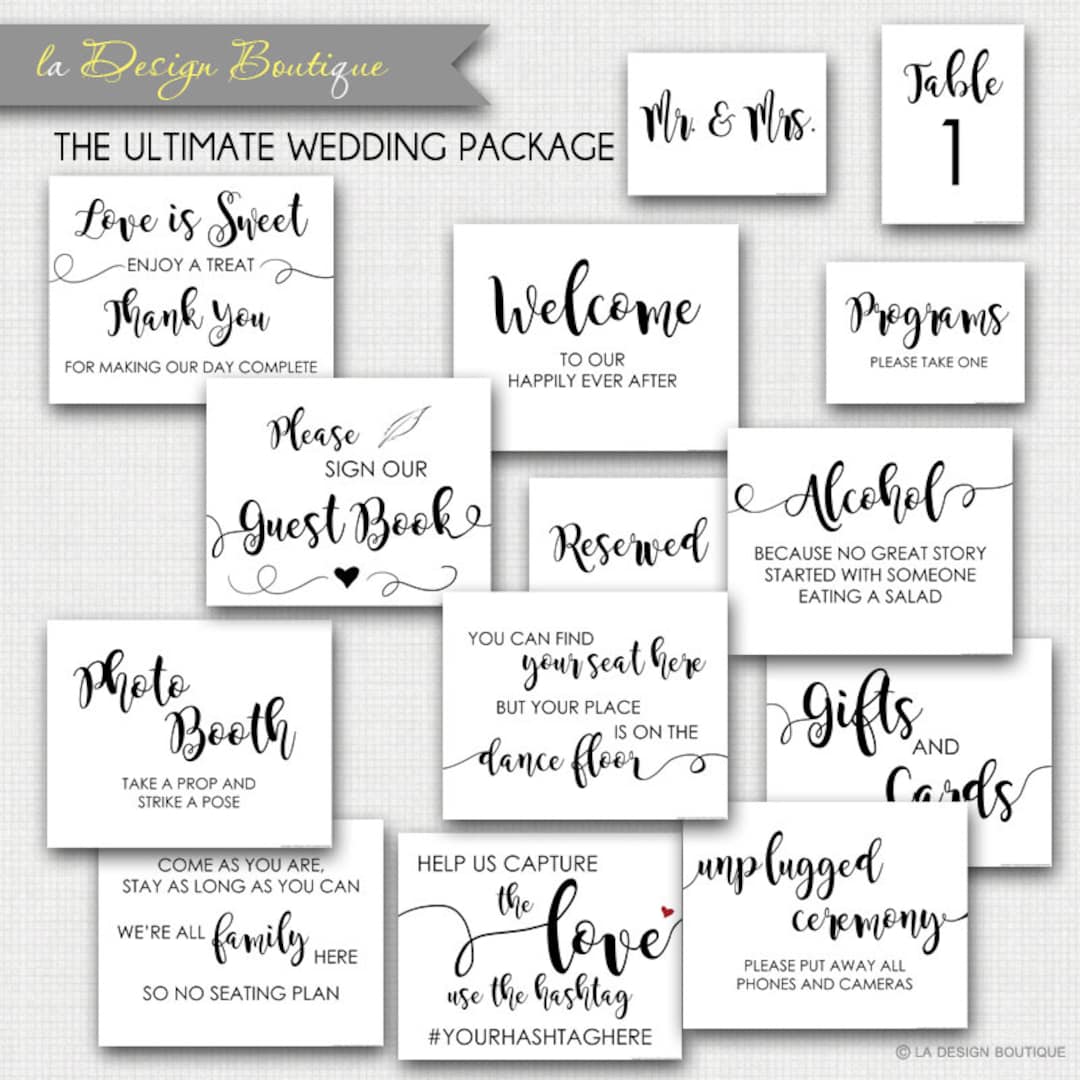 la Design Boutique
THE ULTIMATE WEDDING PACKAGE
Mr. & Mrs.
Table
1
Love is Sweet
ENJOY A TREAT
Thank You
FOR MAKING OUR DAY COMPLETE
Welcome
TO OUR
HAPPILY EVER AFTER
Programs
PLEASE TAKE ONE
Please
SIGN OUR
Guest Book
Reserved
Alcohol
BECAUSE NO GREAT STORY
STARTED WITH SOMEONE
EATING A SALAD
Photo
Booth
TAKE A PROP AND
STRIKE A POSE
YOU CAN FIND
your seat here
BUT YOUR PLACE
IS ON THE
dance floor
Gifts
AND
Cards
COME AS YOU ARE,
STAY AS LONG AS YOU CAN
WE'RE ALL family HERE
SO NO SEATING PLAN
HELP US CAPTURE
the
love
use the hashtag
#YOURHASHTAGHERE
unplugged
ceremony
PLEASE PUT AWAY ALL
PHONES AND CAMERAS
© LA DESIGN BOUTIQUE